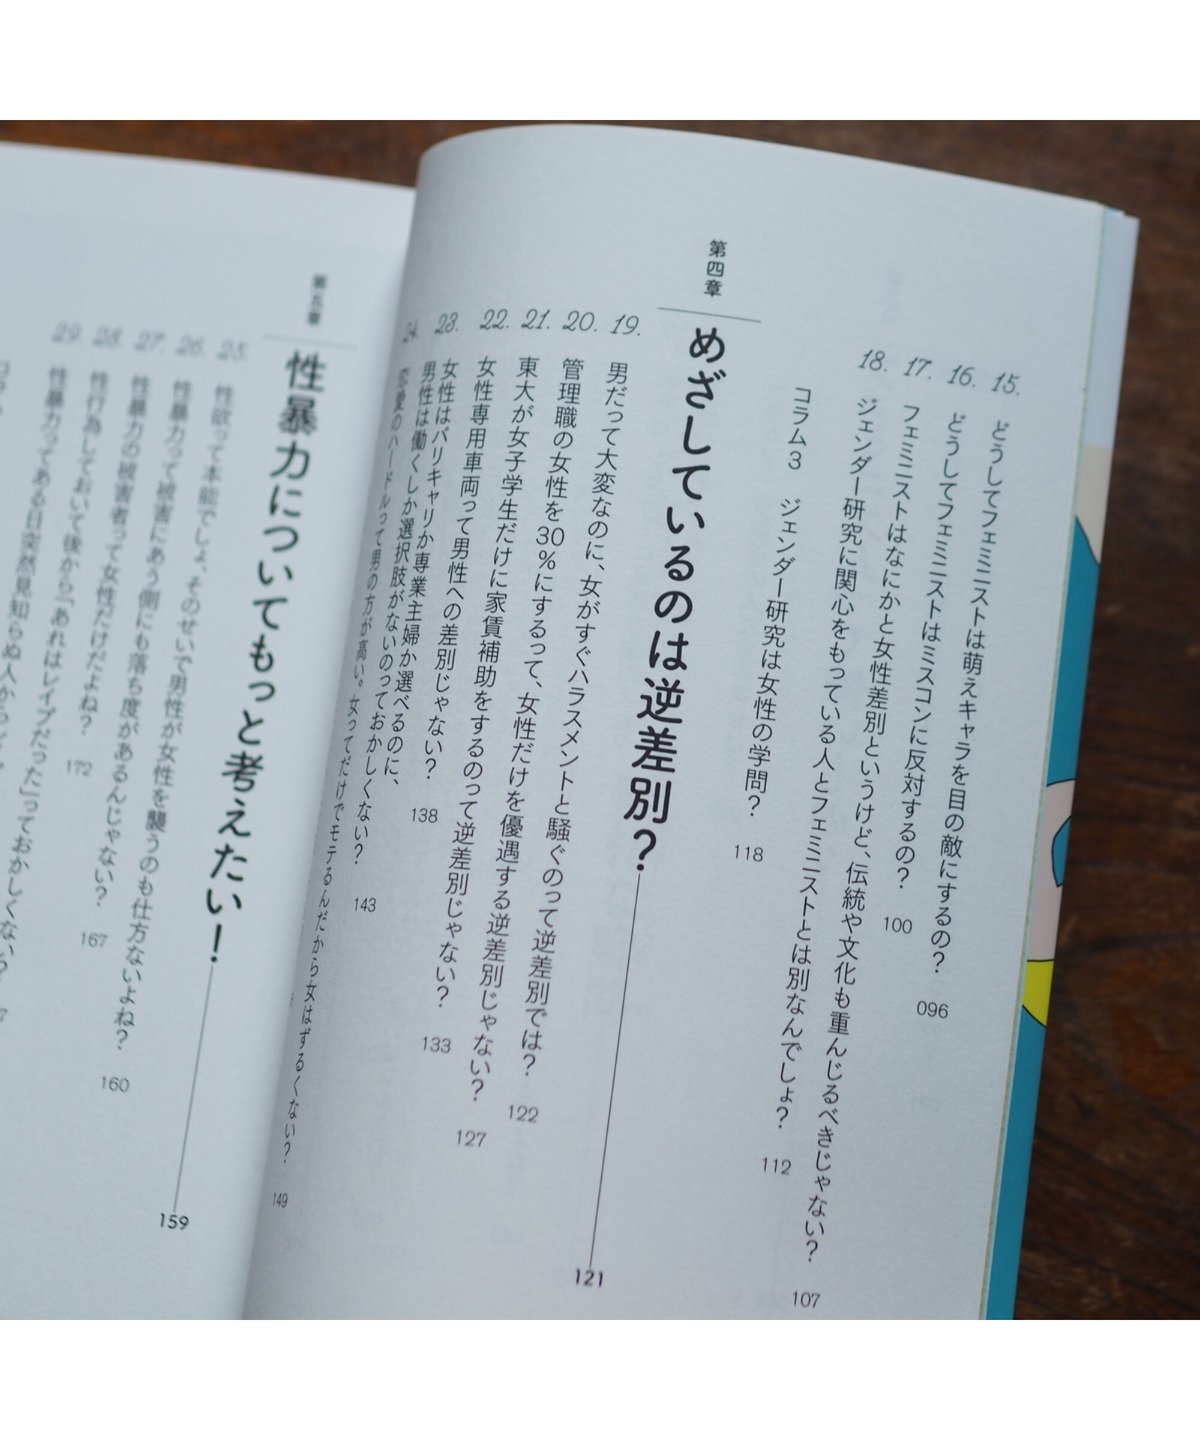 15. どうしてフェミニストは萌えキャラを目の敵にするの？ 096
16. どうしてフェミニストはミスコンに反対するの？ 100
17. フェミニストはなにかと女性差別というけど、伝統や文化も重んじるべきじゃない？ 107
18. ジェンダー研究に関心をもっている人とフェミニストとは別なんでしょ？ 112
コラム3 ジェンダー研究は女性の学問？ 118
第四章 めざしているのは逆差別？ 121
19. 男だって大変なのに、女がすぐハラスメントと騒ぐのって逆差別では？ 122
20. 管理職の女性を30%にするって、女性だけを優遇する逆差別じゃない？ 127
21. 東大が女子学生だけに家賃補助をするのって逆差別じゃない？ 133
22. 女性専用車両って男性への差別じゃない？ 138
23. 女性はバリキャリか専業主婦か選べるのに、
男性は働くしか選択肢がないのっておかしくない？ 143
24. 恋愛のハードルって男の方が高い。女ってだけでモテるんだから女はずるくない？ 149
第五章 性暴力についてもっと考えたい！ 159
25. 性欲って本能でしょ、そのせいで男性が女性を襲うのも仕方ないよね？ 160
26. 性暴力って被害にあう側にも落ち度があるんじゃない？ 167
27. 性暴力の被害者って女性だけだよね？ 172
28. 性行為しておいて後から「あれはレイプだった」っておかしくない？
29. 性暴力ってある日突然見知らぬ人から